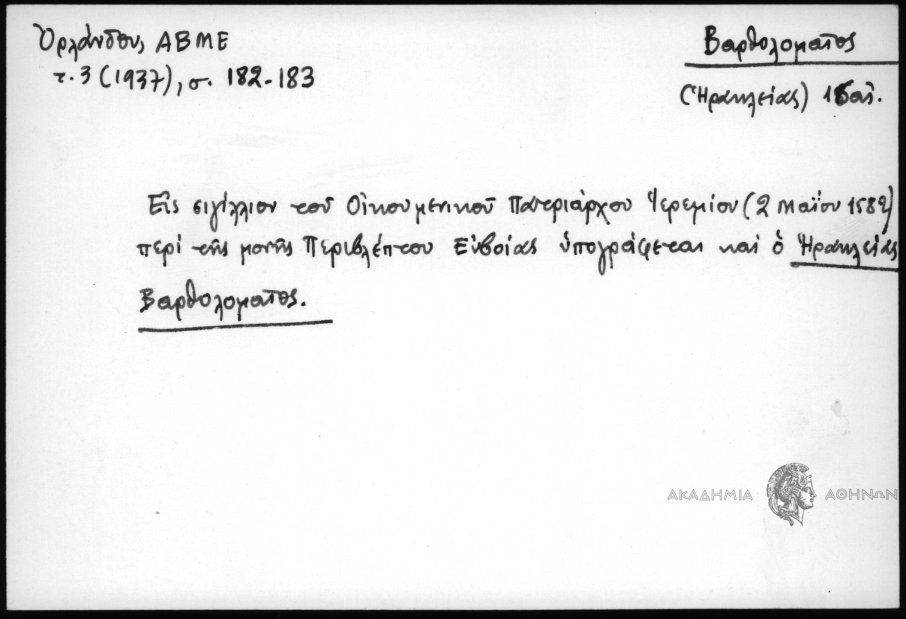 Ὀρλάνδου, ΑΒΜΕ
τ. 3 (1937), σ. 182-183
Βαρθολομαῖος
(Ἡρακλείας) 16 αἰ.
Εἰς σιγίλλιον τοῦ Οἰκουμενικοῦ Πατριάρχου Ἱερεμίου (2 Μαΐου 1582)
περί τῆς μονῆς Περιβλέπτου Εὐβοίας ὑπογράφεται καί ὁ Ἡρακλείας
Βαρθολομαῖος.
ΑΚΑΔΗΜΙΑ ΑΘΗΝΩΝ